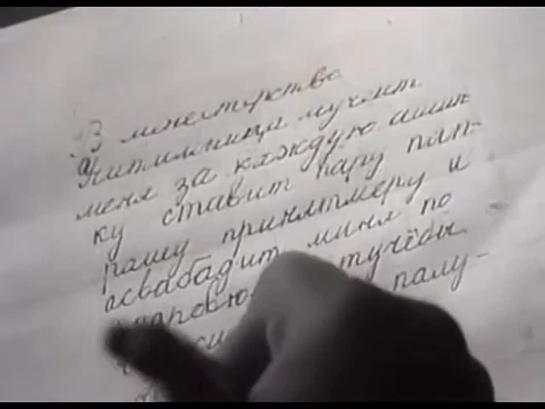 В министирство
Учитильница мучеит
меня за каждую ашип
ку ставит пару пап-
рашу принятмеру и
асвабадит миня по
здаровю тучёбы
палу-